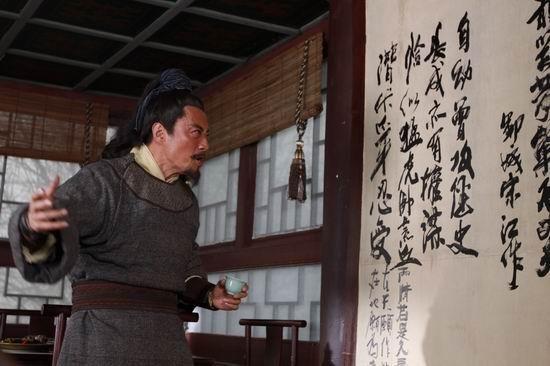 敢笑黄巢不
鄆城宋江作
自幼曾攻經史
長成亦有權謀
恰似猛虎卧荒丘
潛伏爪牙忍受